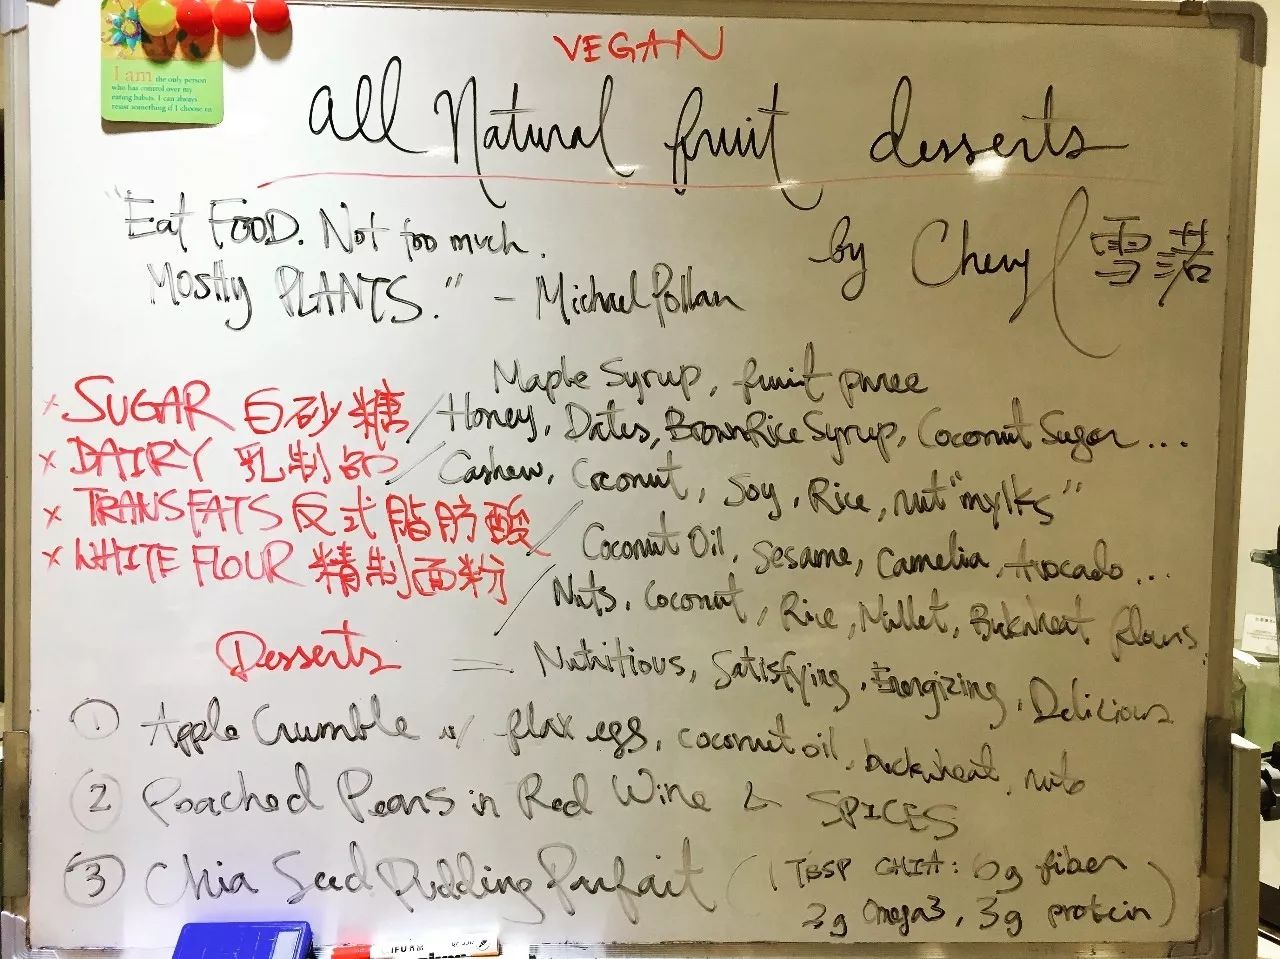 I am the only person
who has control over my
eating habits. I can always
resist something if I choose to
VEGAN
all Natural fruit desserts
by Cheryl 雪落
"Eat FOOD. Not too much.
Mostly PLANTS." - Michael Pollan
Maple Syrup, fruit puree
× SUGAR 白砂糖 / Honey, Dates, Brown Rice Syrup, Coconut Sugar...
× DAIRY 乳制品 / Cashew, Coconut, Soy, Rice, nut "mylks"
× TRANS FATS 反式脂肪酸 / Coconut Oil, Sesame, Camelia, Avocado...
× WHITE FLOUR 精制面粉 / Nuts, Coconut, Rice, Millet, Buckwheat flours
Desserts = Nutritious, Satisfying, Energizing, Delicious
① Apple Crumble w/ flax egg, coconut oil, buckwheat, nuts
② Poached Pears in Red Wine & SPICES
③ Chia Seed Pudding Parfait (1 TBSP CHIA: 6g fiber
3g Omega3, 3g protein)